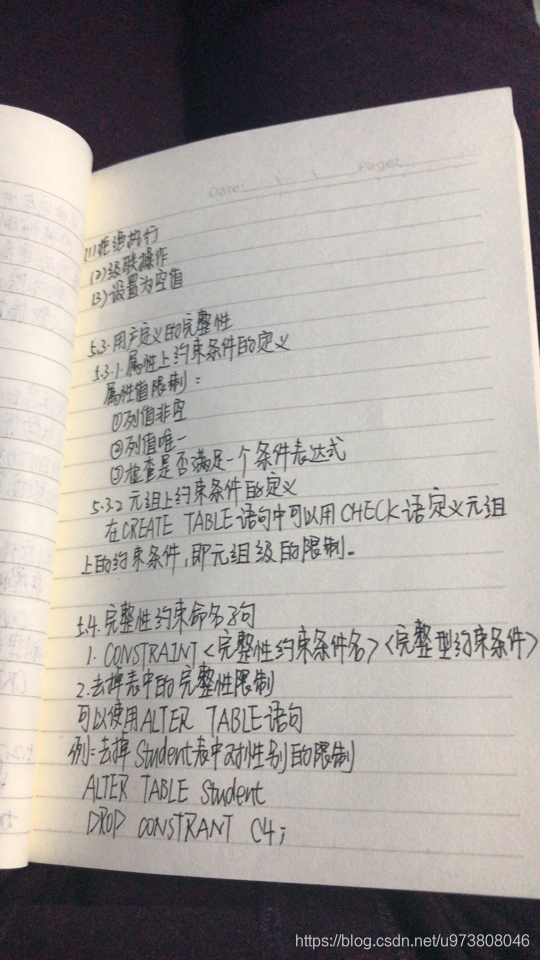 Date: \ \ Page:
(1)拒绝执行
(2)级联操作
(3)设置为空值
5.3.用户定义的完整性
5.3.1.属性上约束条件的定义
属性值限制：
①列值非空
②列值唯一
③检查是否满足一个条件表达式
5.3.2元组上约束条件的定义
在CREATE TABLE语句中可以用CHECK语定义元组
上的约束条件,即元组级的限制。
5.4.完整性约束命名子句
1. CONSTRAINT<完整性约束条件名><完整型约束条件>
2.去掉表中的完整性限制
可以使用ALTER TABLE语句
例=去掉Student表中对性别的限制
ALTER TABLE Student
DROP CONSTRANT C4;
https://blog.csdn.net/u973808046